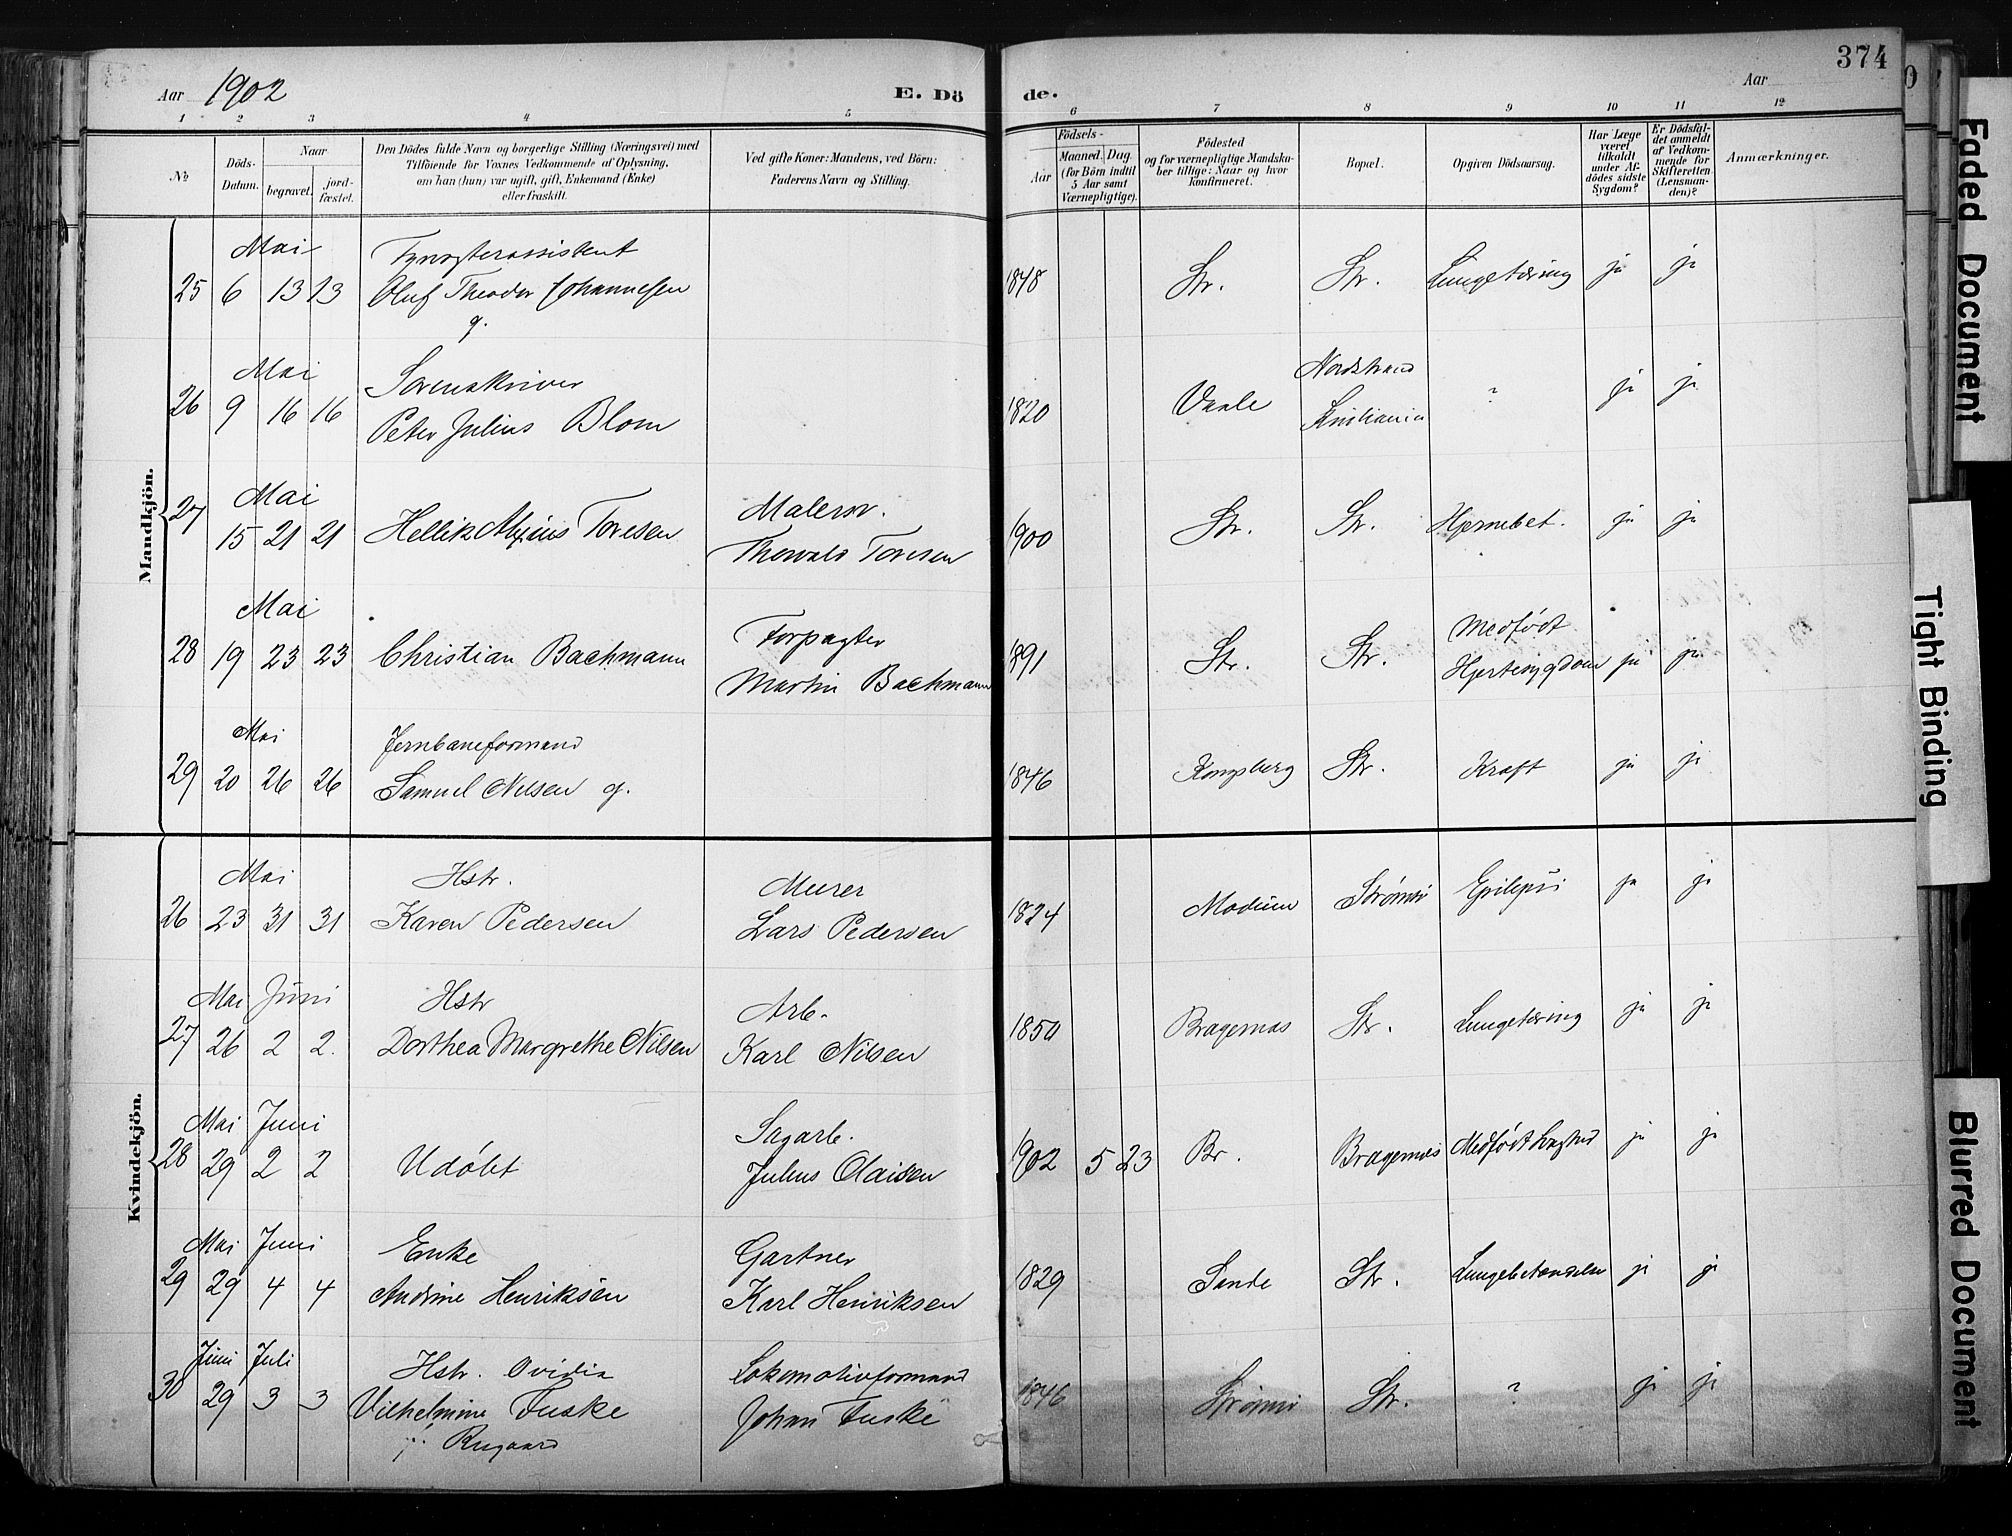 374
Aar 1902 E. Dö de. Aar
1 2 3 4 5 6 7 8 9 10 11 12
№
Döds-Datum.
Naar
begravet.
jord-fæstet.
Den Dödes fulde Navn og borgerlige Stilling (Næringsvei) med
Tilföiende for Voxnes Vedkommende af Oplysning,
om han (hun) var ugift, gift, Enkemand (Enke)
eller fraskilt.
Ved gifte Koner: Mandens, ved Börn:
Faderens Navn og Stilling.
Födsels-
Aar
Maaned. Dag.
(for Börn indtil
5 Aar samt
Værnepligtige).
Födested
og for værnepligtige Mandska-
ber tillige: Naar og hvor
konfirmeret.
Bopæl.
Opgiven Dödsaarsag.
Har Læge
været
tilkaldt
under Af-
dödes sidste
Sygdom?
Er Dödsfal-
det anmeldt
af Vedkom-
mende for
Skifteretten
(Lensman-
den)?
Anmærkninger.
Mandkjön.
Mai Fyrvogterassistent
25 6 13 13 Oluf Theodor Johannesen 1848 Str. Str. Lungetæring ja ja
g.
Mai Sorenskriver Nordstrand
26 9 16 16 Peter Julius Blom 1820 Vaale Kristiania ? ja ja
Mai Malersv.
27 15 21 21 Hellik Toresen Thorvald Toresen 1900 Str. Str. Hjernebet. ja ja
Mai Forpagter Medfødt
28 19 23 23 Christian Bachmann Martin Bachmann 1891 Str. Str. Hjertesygdom ja ja
Mai Jernbaneformand
29 20 26 26 Samuel Nilsen g. 1846 Kongsberg Str. Kræft ja ja
Kvindekjön.
Mai Hstr. Murer
26 23 31 31 Karen Pedersen Lars Pedersen 1824 Modum Strømsø Epilepsi ja ja
Mai Juni Hstr Arb.
27 26 2 2. Dorthea Margrethe Nilsen Karl Nilsen 1850 Bragernæs Str. Lungetæring ja ja
Mai Juni Sagarb.
28 29 2 2 Udøbt Julius Olaisen 1902 5 23 Br. Bragernæs Medfødt Svaghed ja ja
Mai Juni Enke Gartner
29 29 4 4 Andrine Henriksen Karl Henriksen 1829 Sande Str. Lungebetændelse ja ja
Juni Juli Hstr. Ovidia Lokomotivformand
30 29 3 3 Vilhelmine Fuske Johan Fuske 1846 Strømsø Str. ? ja ja
Faded Document
Tight Binding
Blurred Document